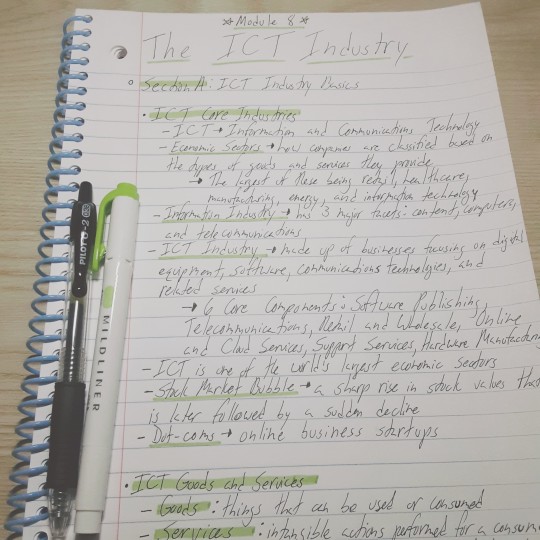 ☆ Module 8 ☆
The ICT Industry
Section A: ICT Industry Basics
• ICT Core Industries
- ICT → Information and Communications Technology
- Economic Sectors → how companies are classified based on
the types of goods and services they provide
→ The largest of these being retail, healthcare,
manufacturing, energy, and information technology
- Information Industry → has 3 major facets: content, computers,
and telecommunications
- ICT Industry → made up of businesses focusing on digital
equipment, software, communications technologies, and
related services
→ 6 Core Components: Software Publishing,
Telecommunications, Retail and Wholesale, Online
and Cloud Services, Support Services, Hardware Manufacturin
- ICT is one of the world's largest economic sectors
- Stock Market Bubble → a sharp rise in stock values that
is later followed by a sudden decline
- Dot-coms → online business startups
• ICT Goods and Services
- Goods: things that can be used or consumed
- Services: intangible actions performed for a consum
PILOT G-2
MILDLINER